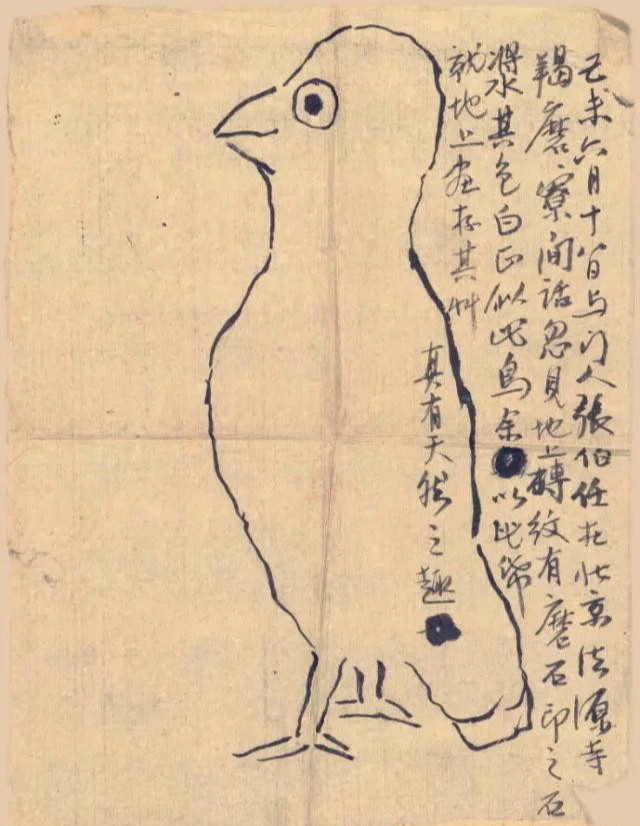 己未六月十八日与门人張伯任在北京法源寺
羯磨寮闲話忽見地上磚紋有磨石印之石
漿其色白正似此鳥余以此紙
就地上画存其草
真有天然之趣